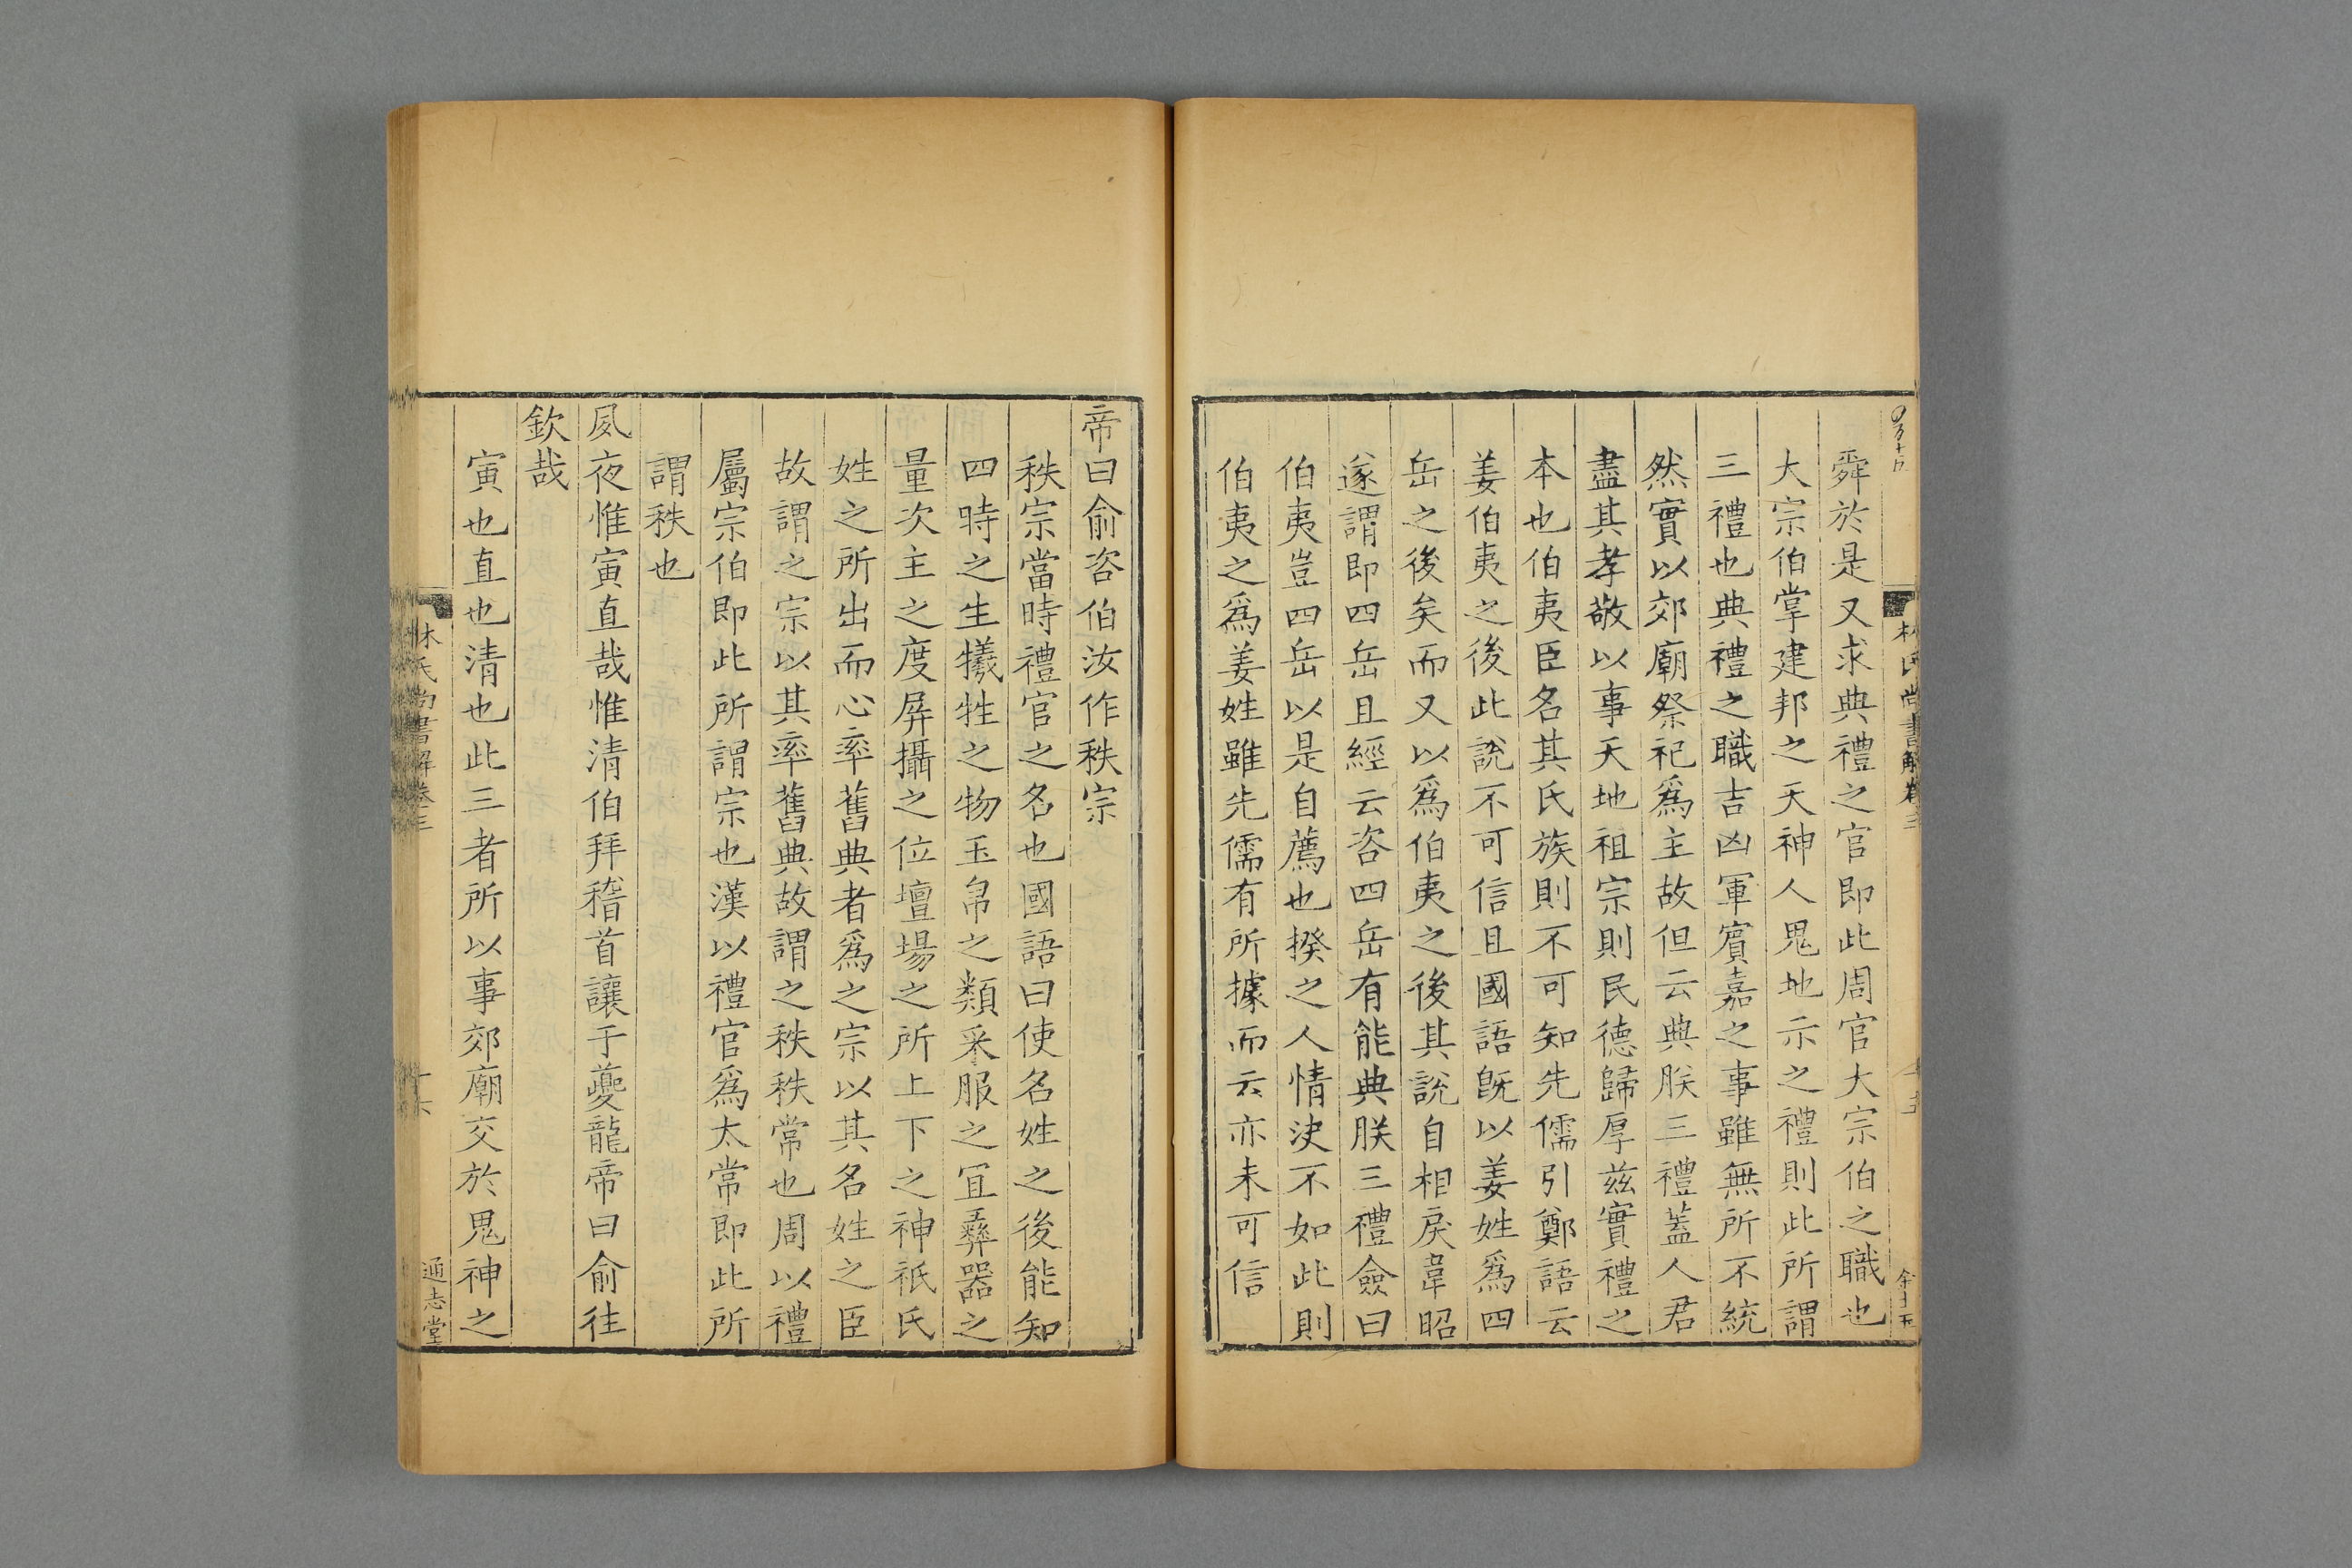 舜於是又求典禮之官即此周官大宗伯之職也
大宗伯掌建邦之天神人鬼地示之禮則此所謂
三禮也典禮之職吉凶軍賓嘉之事雖無所不統
然實以郊廟祭祀爲主故但云典朕三禮蓋人君
盡其孝敬以事天地祖宗則民德歸厚茲實禮之
本也伯夷臣名其氏族則不可知先儒引鄭語云
姜伯夷之後此說不可信且國語旣以姜姓爲四
岳之後矣而又以爲伯夷之後其說自相戾韋昭
遂謂即四岳且經云咨四岳有能典朕三禮僉曰
伯夷豈四岳以是自薦也揆之人情決不如此則
伯夷之爲姜姓雖先儒有所據而云亦未可信
帝曰俞咨伯汝作秩宗
秩宗當時禮官之名也國語曰使名姓之後能知
四時之生犧牲之物玉帛之類采服之宜彝器之
量次主之度屏攝之位壇場之所上下之神祇氏
姓之所出而心率舊典者爲之宗以其名姓之臣
故謂之宗以其率舊典故謂之秩秩常也周以禮
屬宗伯即此所謂宗也漢以禮官爲太常即此所
謂秩也
夙夜惟寅直哉惟清伯拜稽首讓于夔龍帝曰俞往
欽哉
寅也直也清也此三者所以事郊廟交於鬼神之
林氏尚書解卷三
十六
通志堂